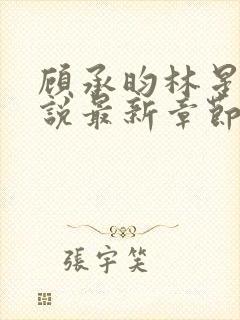 顾承昀林星
說最新章節
張宇笑